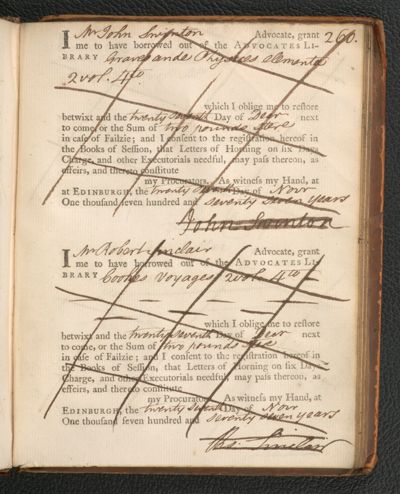 260.
I Mr John Swinton Advocate, grant
me to have borrowed out of the ADVOCATES LI-
BRARY Gravesande Physices elementa
2 vol. 4to
which I oblige me to reſtore
betwixt and the twenty seventh Day of Decr next
to come, or the Sum of two pounds
in caſe of Failzie; and I conſent to the regiſtration hereof in
the Books of Seſſion, that Letters of Horning on ſix Days
Charge, and other Executorials needful, may paſs thereon, as
effeirs, and thereto conſtitute
my Procurators. As witneſs my Hand, at
at EDINBURGH, the twenty seventh Day of Novr
One thouſand ſeven hundred and seventy seven years
John Swinton
I Mr Robert Sinclair Advocate, grant
me to have borrowed out of the ADVOCATES LI-
BRARY Cookes Voyages 2 vol. 4to
which I oblige me to reſtore
betwixt and the twenty seventh Day of Decr next
to come, or the Sum of two pounds
in caſe of Failzie; and I conſent to the regiſtration hereof in
the Books of Seſſion, that Letters of Horning on ſix Days
Charge, and other Executorials needful, may paſs thereon, as
effeirs, and thereto conſtitute
my Procurators. As witneſs my Hand, at
EDINBURGH, the twenty seventh Day of Novr
One thouſand ſeven hundred and seventy seven years
Ro. Sinclair